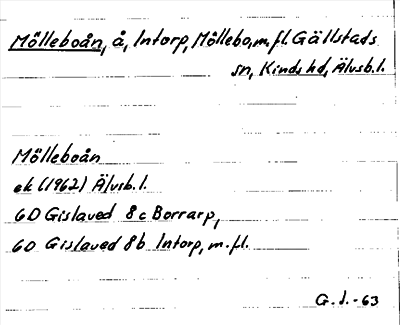 Mölleboån, å, Intorp, Möllebo, m.fl. Gällstads
sn, Kinds hd, Älvsb.l.
Mölleboån
ek (1962) Älvsb.l.
6D Gislaved 8c Borrarp,
6D Gislaved 8b Intorp, m.fl.
G.J.-63